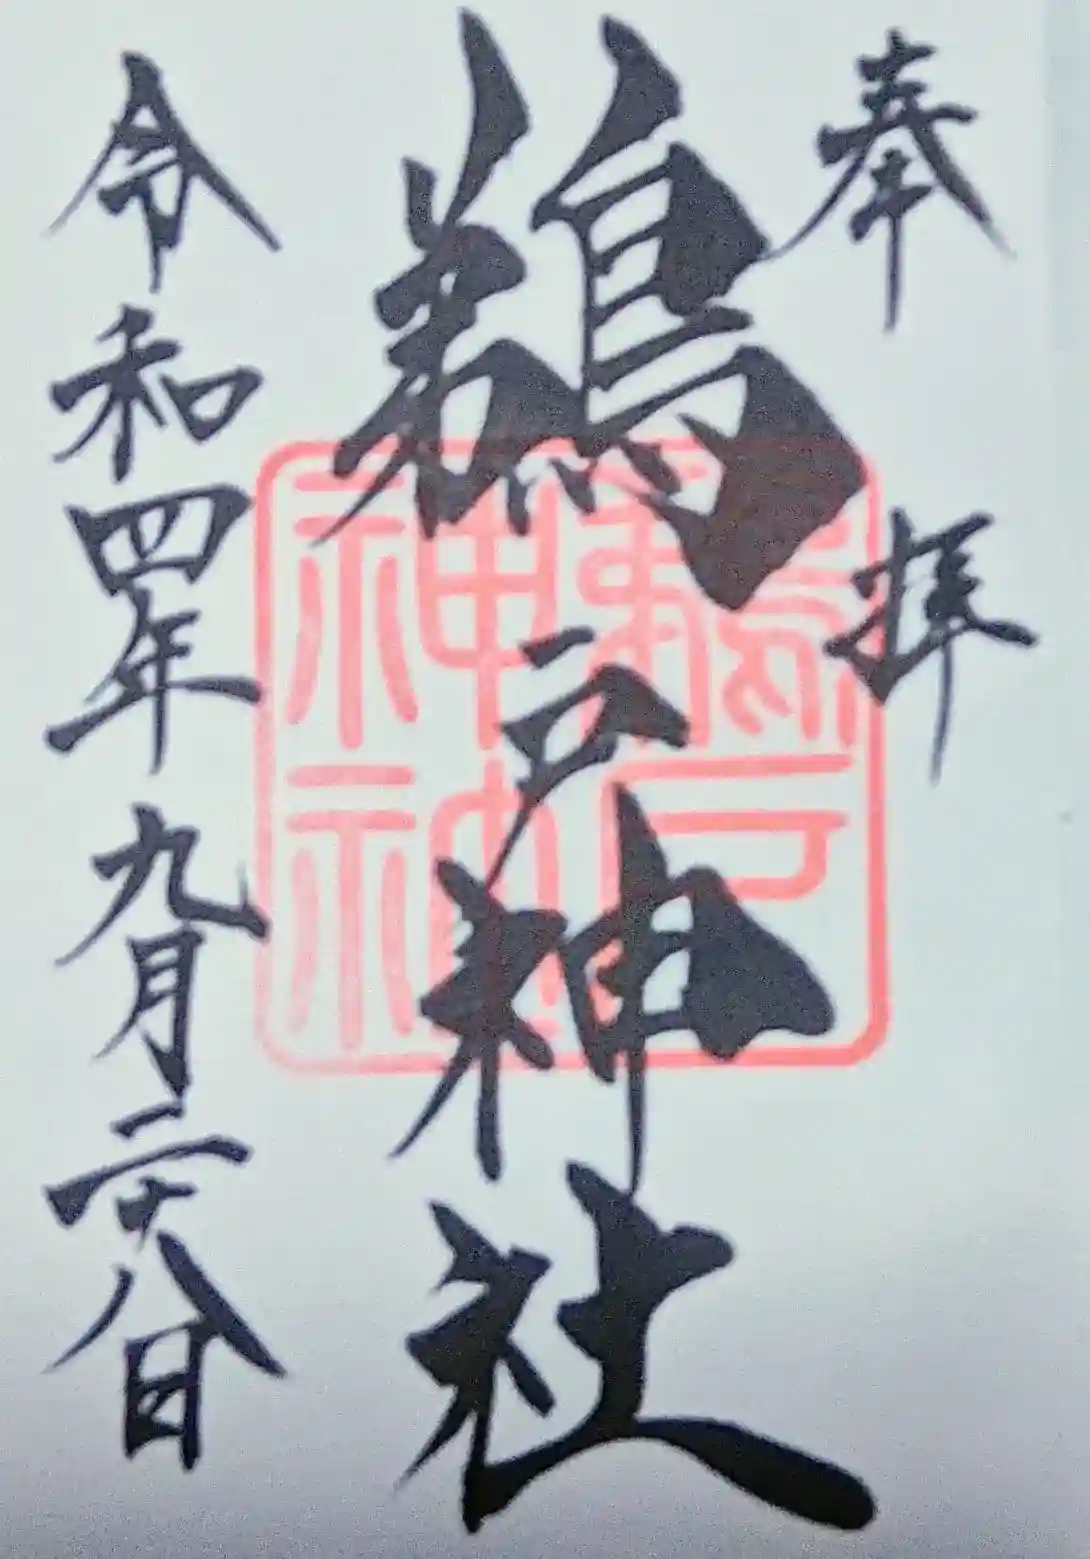 奉拝
鵜戸神社
鵜戸
神社
令和四年九月二十八日